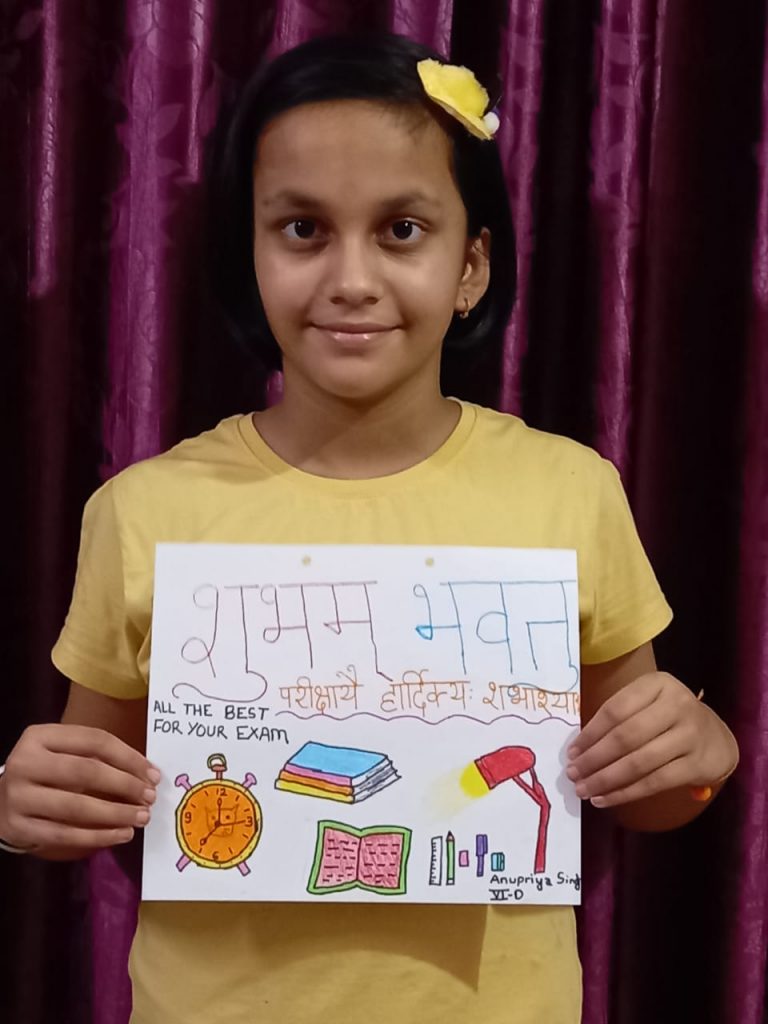 शुभम् भवतु
परीक्षायै हार्दिक्यः
ALL THE BEST
FOR YOUR EXAM
12
9 3
6
Anupriya Sing
VI-D